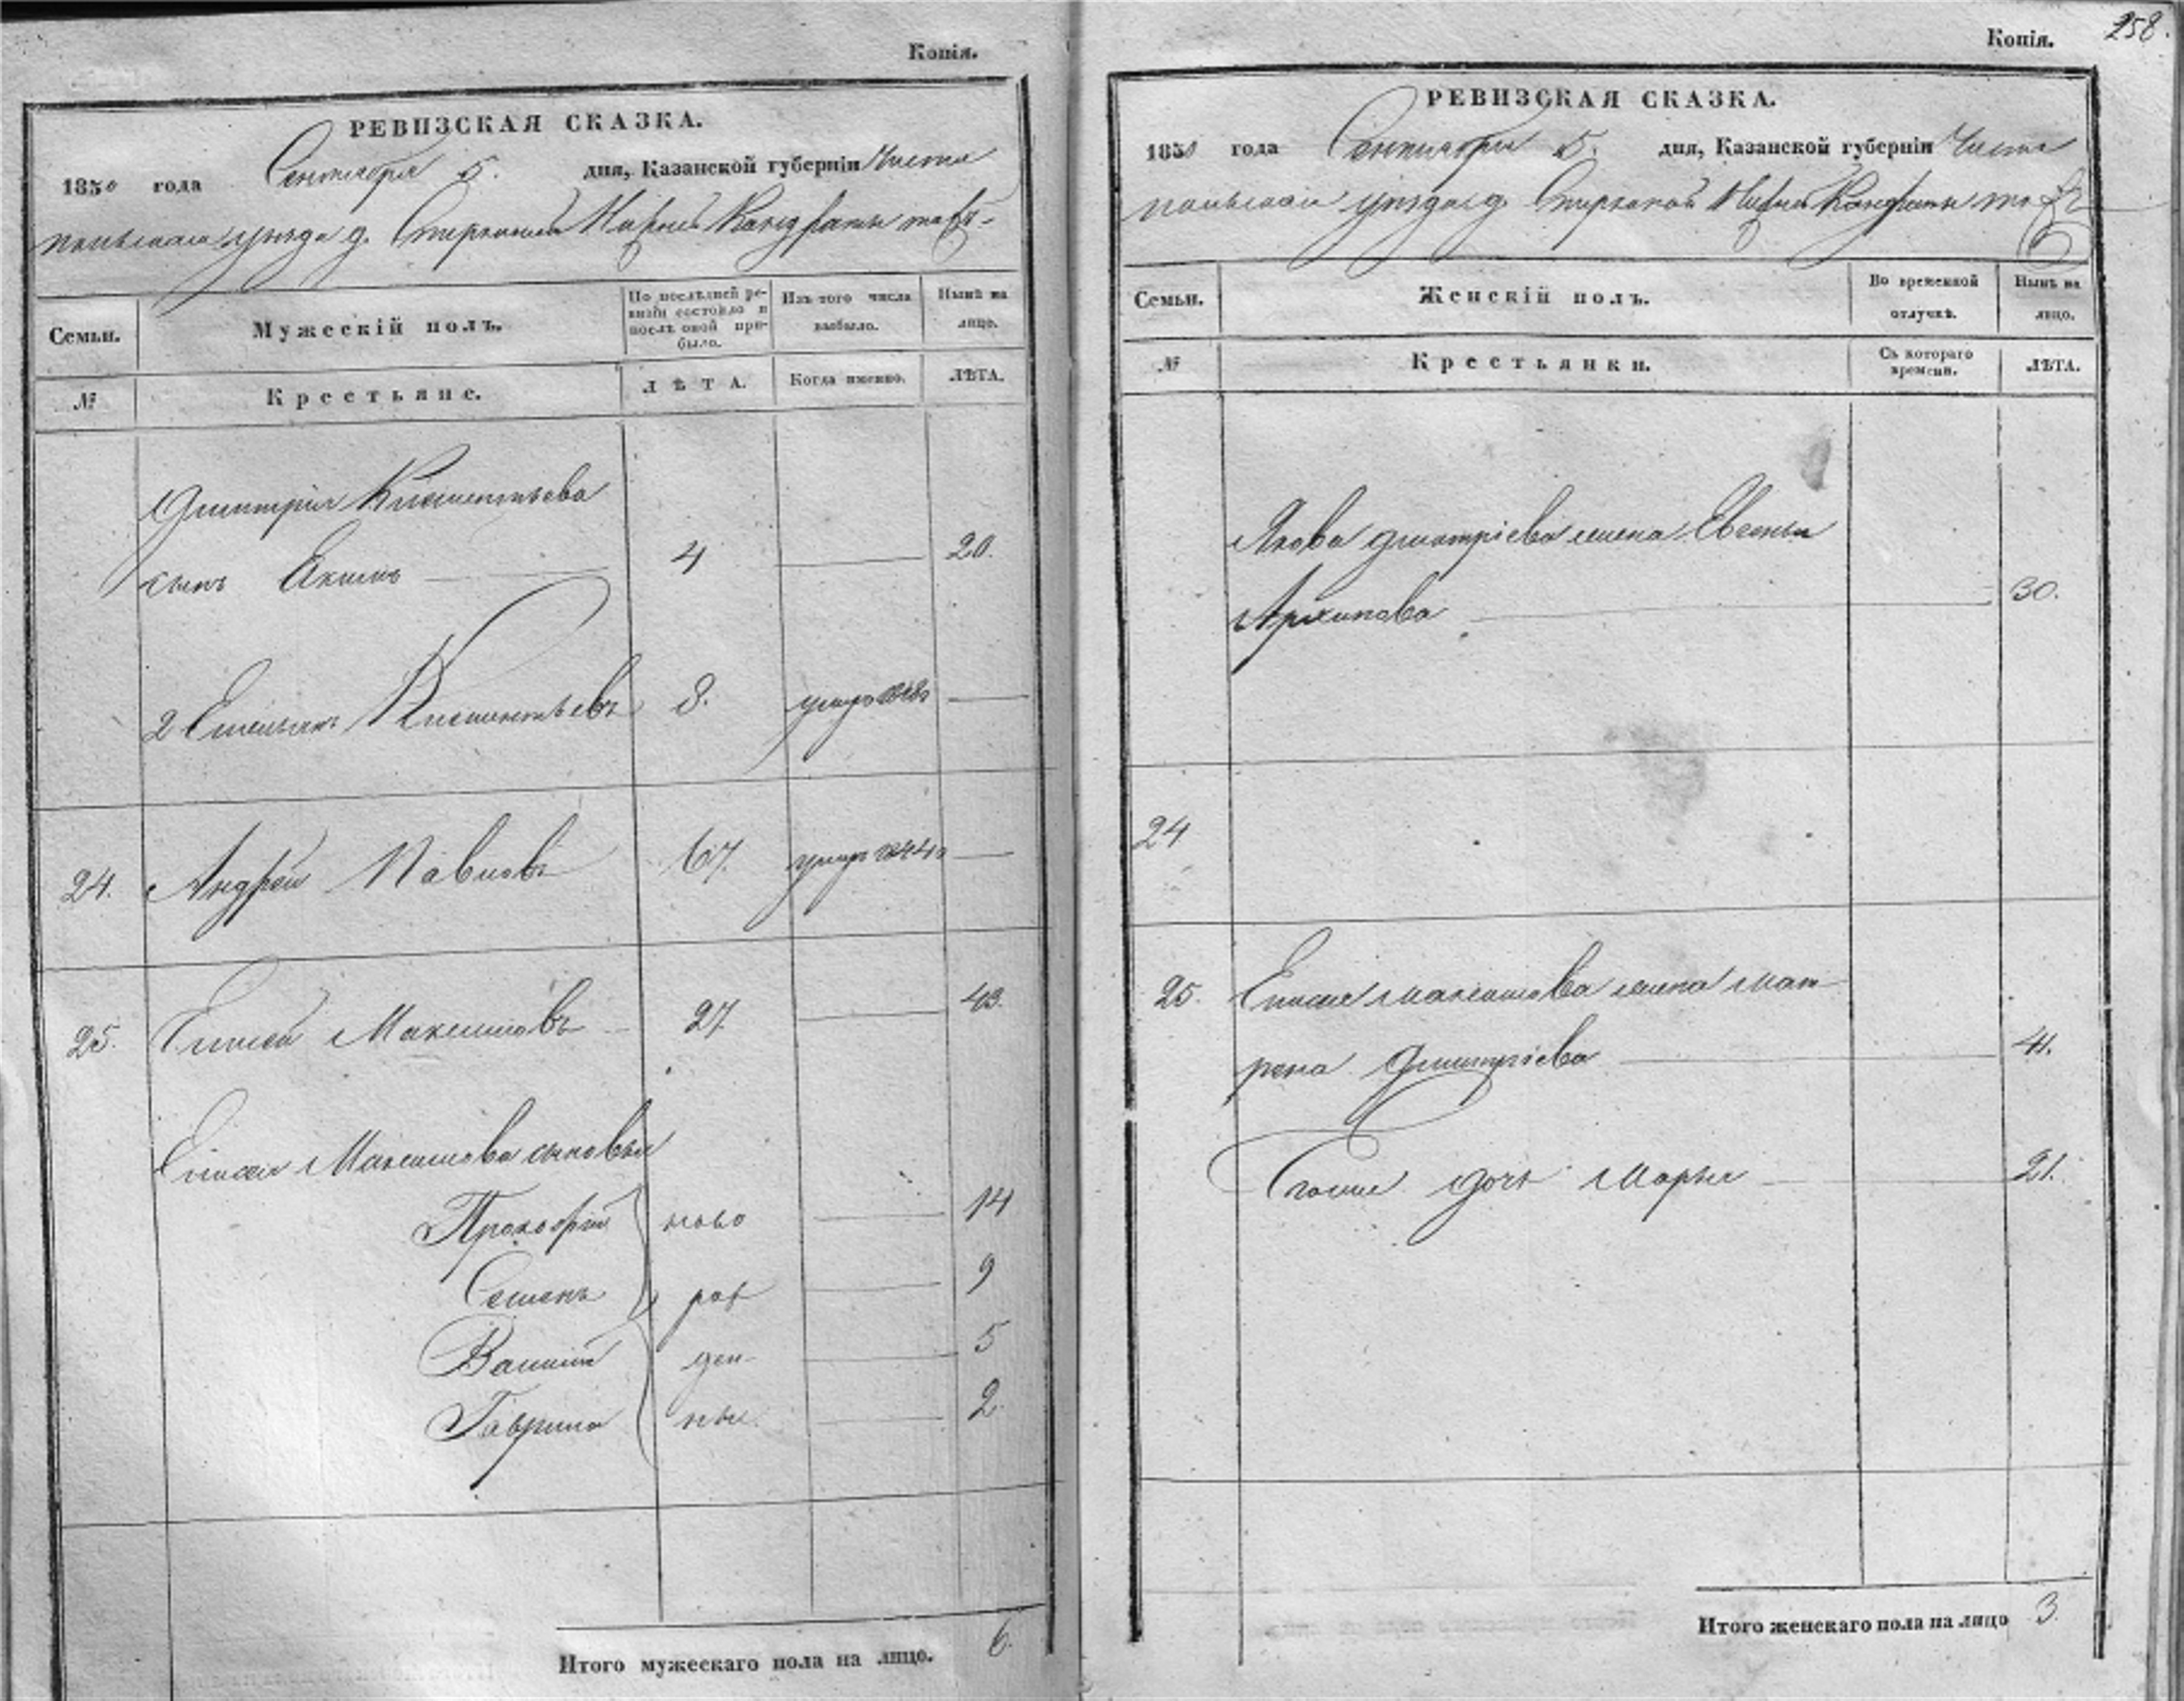 Копія.
РЕВИЗСКАЯ СКАЗКА.
1850 года Сентября 5. дня, Казанской губерніи Чисто
польскаго уѣзда д.
Семьи. Мужескій полъ. По послѣдней ре-визіи состояло и послѣ оной при-было. Изъ того числа выбыло. Нынѣ на лицо.
№ Крестьяне. ЛѢТА. Когда именно. ЛѢТА.
Дмитрія Климентьева
сынъ Акимъ 4 20.
2 Емельянъ Климентьевъ 8. умеръ
24. Андрей Павловъ 67. умеръ 1844
25. Елисей Максимовъ 27. 43.
Елисея Максимова сыновья
Прокофій ново 14
Семенъ рож 9
Василій ден 5
Гаврила ные. 2.
Итого мужескаго пола на лицо. 6.
Копія. 258.
РЕВИЗСКАЯ СКАЗКА.
1850 года Сентября 5. дня, Казанской губерніи Чисто
польскаго уѣзда д.
Семьи. Женскій полъ. Во временной отлучкѣ. Нынѣ на лицо.
№ Крестьянки. Съ котораго времени. ЛѢТА.
Якова Дмитріева жена Евгенья
Архипова 30.
24
25. Елисея Максимова жена Мат
рена Дмитріева 41.
дочь Марья 21.
Итого женскаго пола на лицо 3.